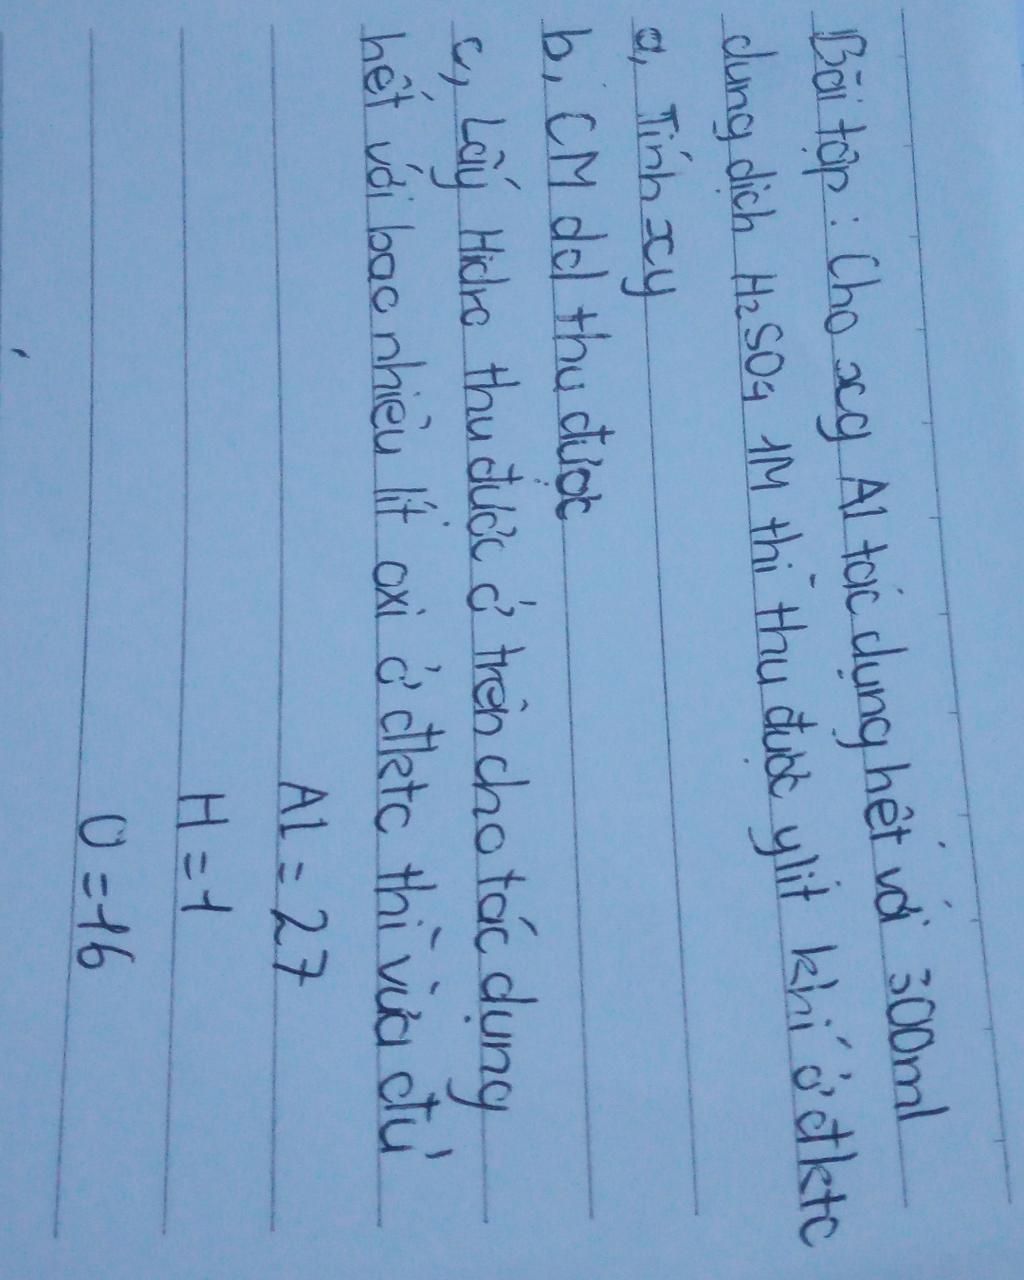 Bài tập: Cho xg Al tác dụng hết với 300ml
dung dịch H₂SO₄ 1M thì thu được ylit khí ở đktc
a, Tính xy
b, CM dd thu được
c, Lấy Hidro thu được ở trên cho tác dụng
hết với bao nhiêu lít oxi ở đktc thì vừa đủ
Al = 27
H = 1
O = 16